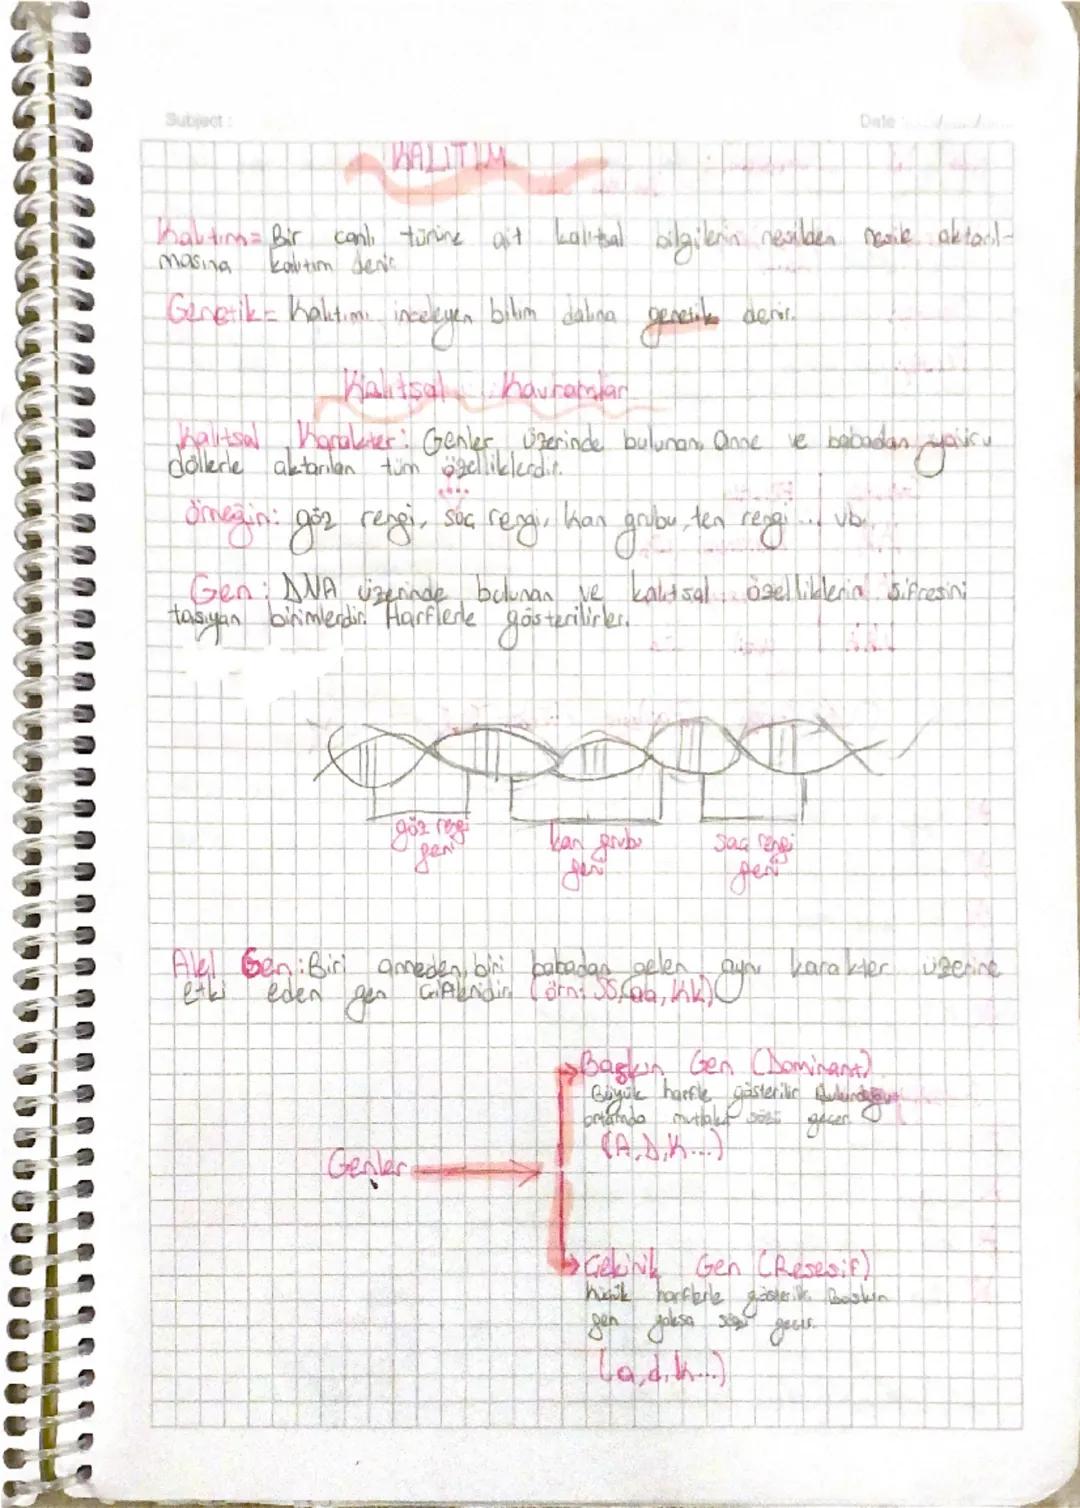 Subject:
Date
KALITIM
Kalıtım= Bir canlı türüne ait kalıtsal bilgilerin nesilden nesile aktarıl-
masına kalıtım denir.
Genetik= Kalıtımı inceleyen bilim dalına genetik denir.
Kalıtsal Kavramlar
Kalıtsal Karakter: Genler üzerinde bulunan, anne ve babadan yavru
döllerle aktarılan tüm özelliklerdir.
Örneğin: göz rengi, saç rengi, kan grubu, ten rengi... vb.
Gen: DNA üzerinde bulunan ve kalıtsal özelliklerin şifresini
taşıyan birimlerdir. Harflerle gösterilirler.
göz rengi kan grubu saç rengi
geni geni geni
Alel Gen: Biri anneden, biri babadan gelen aynı karakter üzerine
etki eden gen çiftleridir. (örn: SS, aa, Kk)
Baskın Gen (Dominant)
Büyük harfle gösterilir. Bulunduğu
ortamda mutlaka sözü geçer.
(A,D,K...)
Genler
Çekinik Gen (Resesif)
küçük harflerle gösterilir. Baskın
gen yoksa sözü geçer.
(a,d,k...)